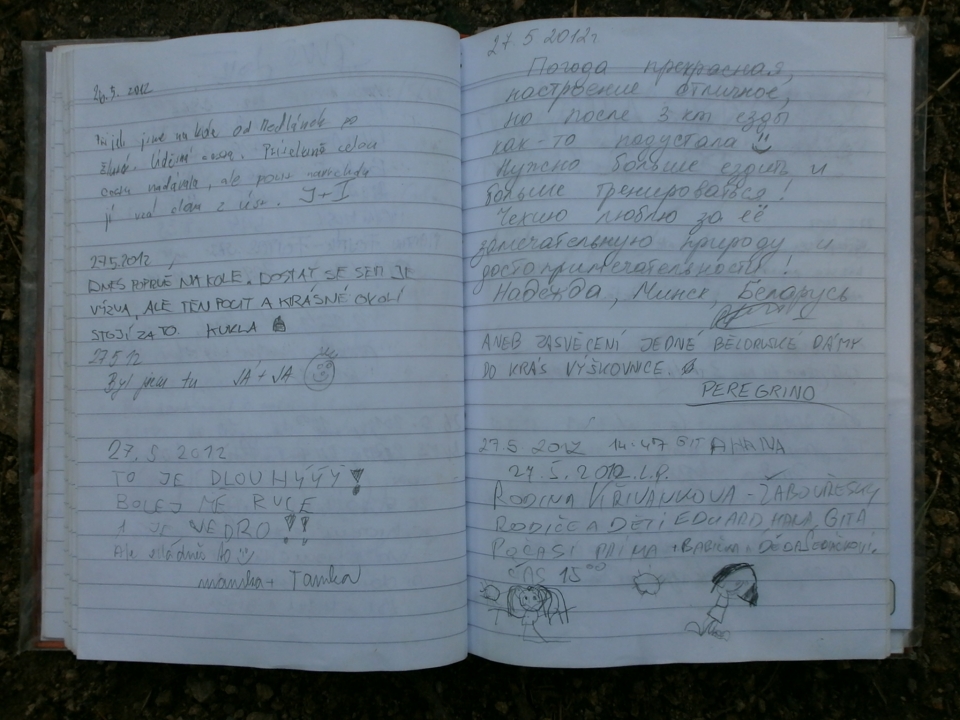 26.5. 2012
jsme na kole od Medlánek po
celou
cestu nadávala, ale pocit
J+I
27.5.2012
DNES POPRVÉ NA KOLE. DOSTAT SE SEM JE
VÝZVA, ALE TEN POCIT A KRÁSNÉ OKOLÍ
STOJÍ ZA TO. KUKLA
27.5.12
Byl jsem tu JÁ + JA
27.5. 2012
TO JE DLOUHÝÝÝ!
BOLEJ MĚ RUCE
A JE VEDRO!!
Ale
mamka + Tamka
27 5 2012г
Погода прекрасная,
настроение отличное,
но после 3 km езды
как-то подустала
Нужно больше ездить и
больше тренироваться!
Чехию люблю за её
замечательную природу и
достопримечательности!
Надежда, Минск, Беларусь
ANEB ZASVĚCENÍ JEDNÉ BĚLORUSKÉ DÁMY
DO KRÁS VÝŠKOVNICE.
PEREGRINO
27.5 2012 14:47 GITA HANA
27.5. 2012. L.P.
RODINA KŘIVÁNKOVA - ŽABOVŘESKY
RODIČE A DĚTI EDUARD, HANA, GITA
POČASÍ PRIMA + BABIČKA + DĚDA
ČAS 15⁰⁰